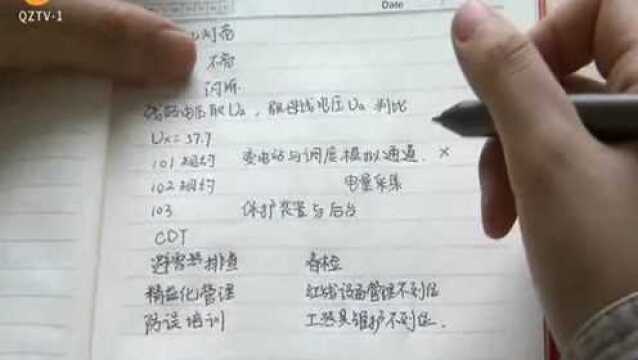 QZTV·1
Date
对面
不省
线路电压取Ux，取母线电压Ua 对比
Ux=57.7
101规约 变电站与调度模拟通道. ×
102规约 电量采集
103 保护装置与后台
CDT
避雷器排查 春检
精益化管理 红线设备管理不到位
防误培训 工器具维护不到位.